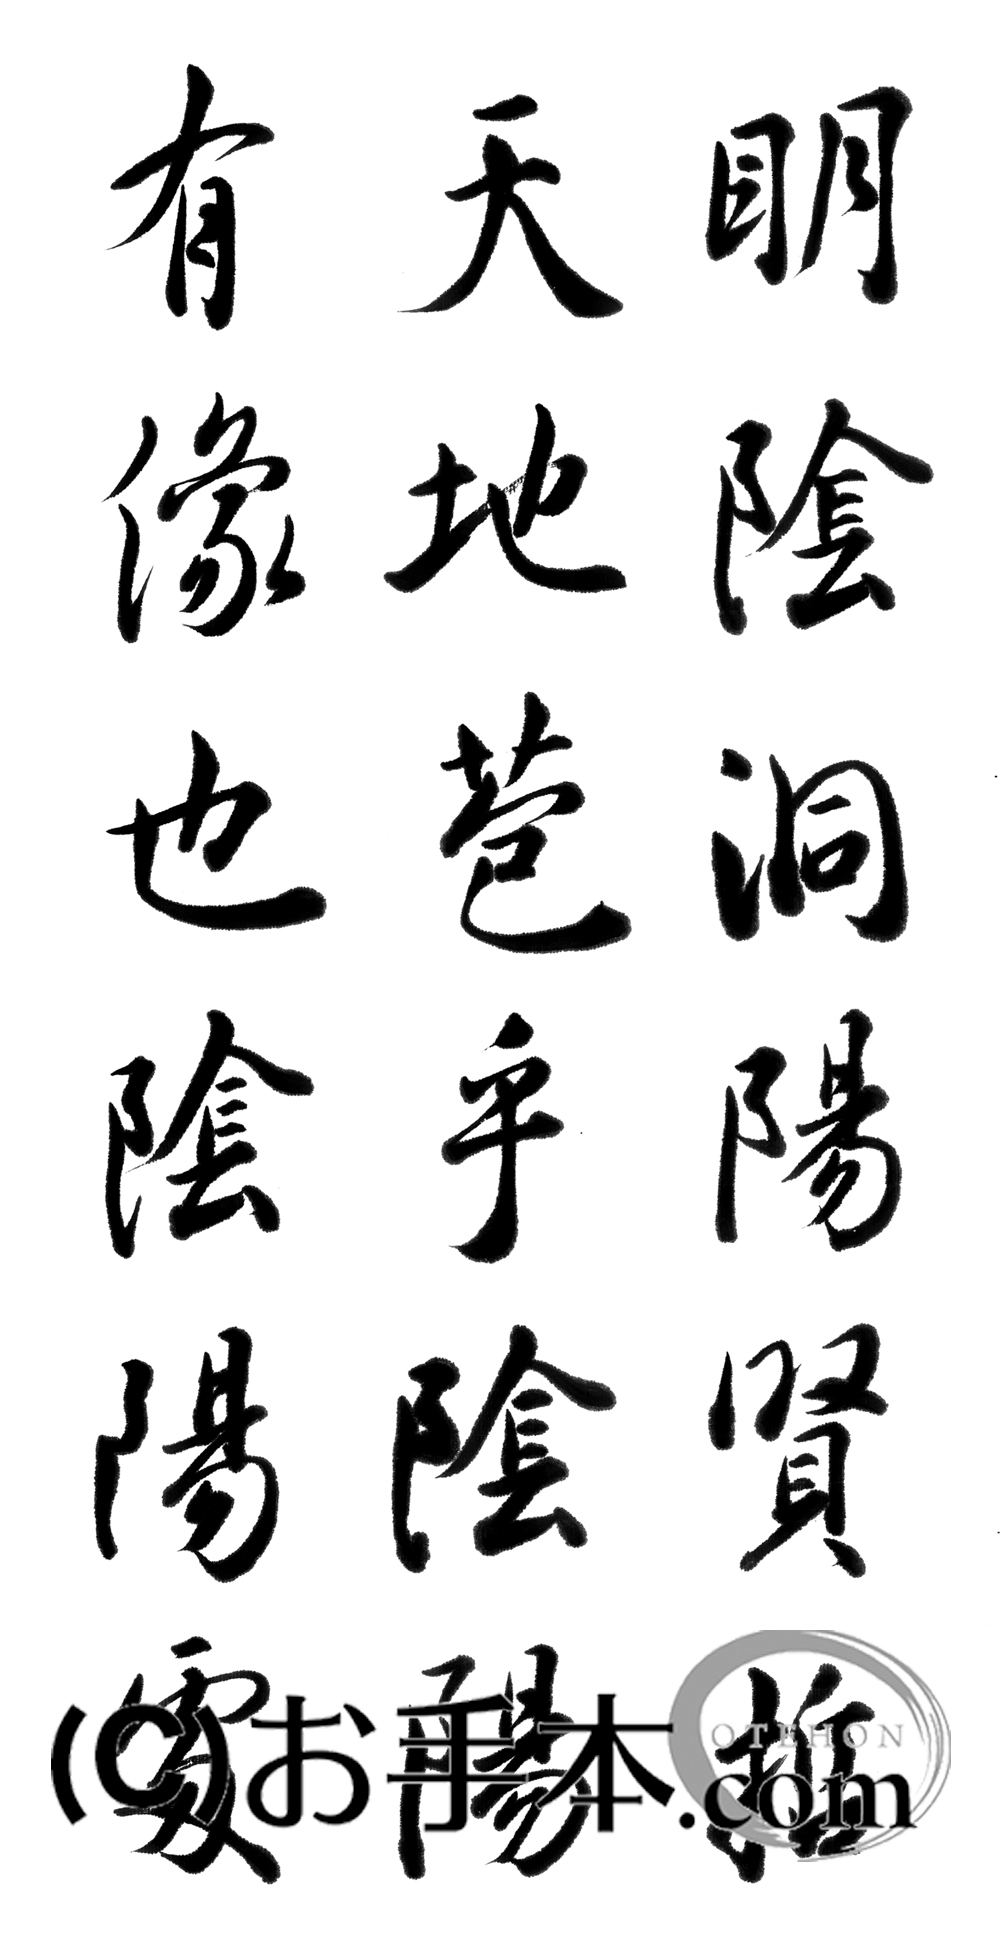 明陰洞陽賢哲
天地苞乎陰陽
有像也陰陽處
OTEHON
(C)お手本.com